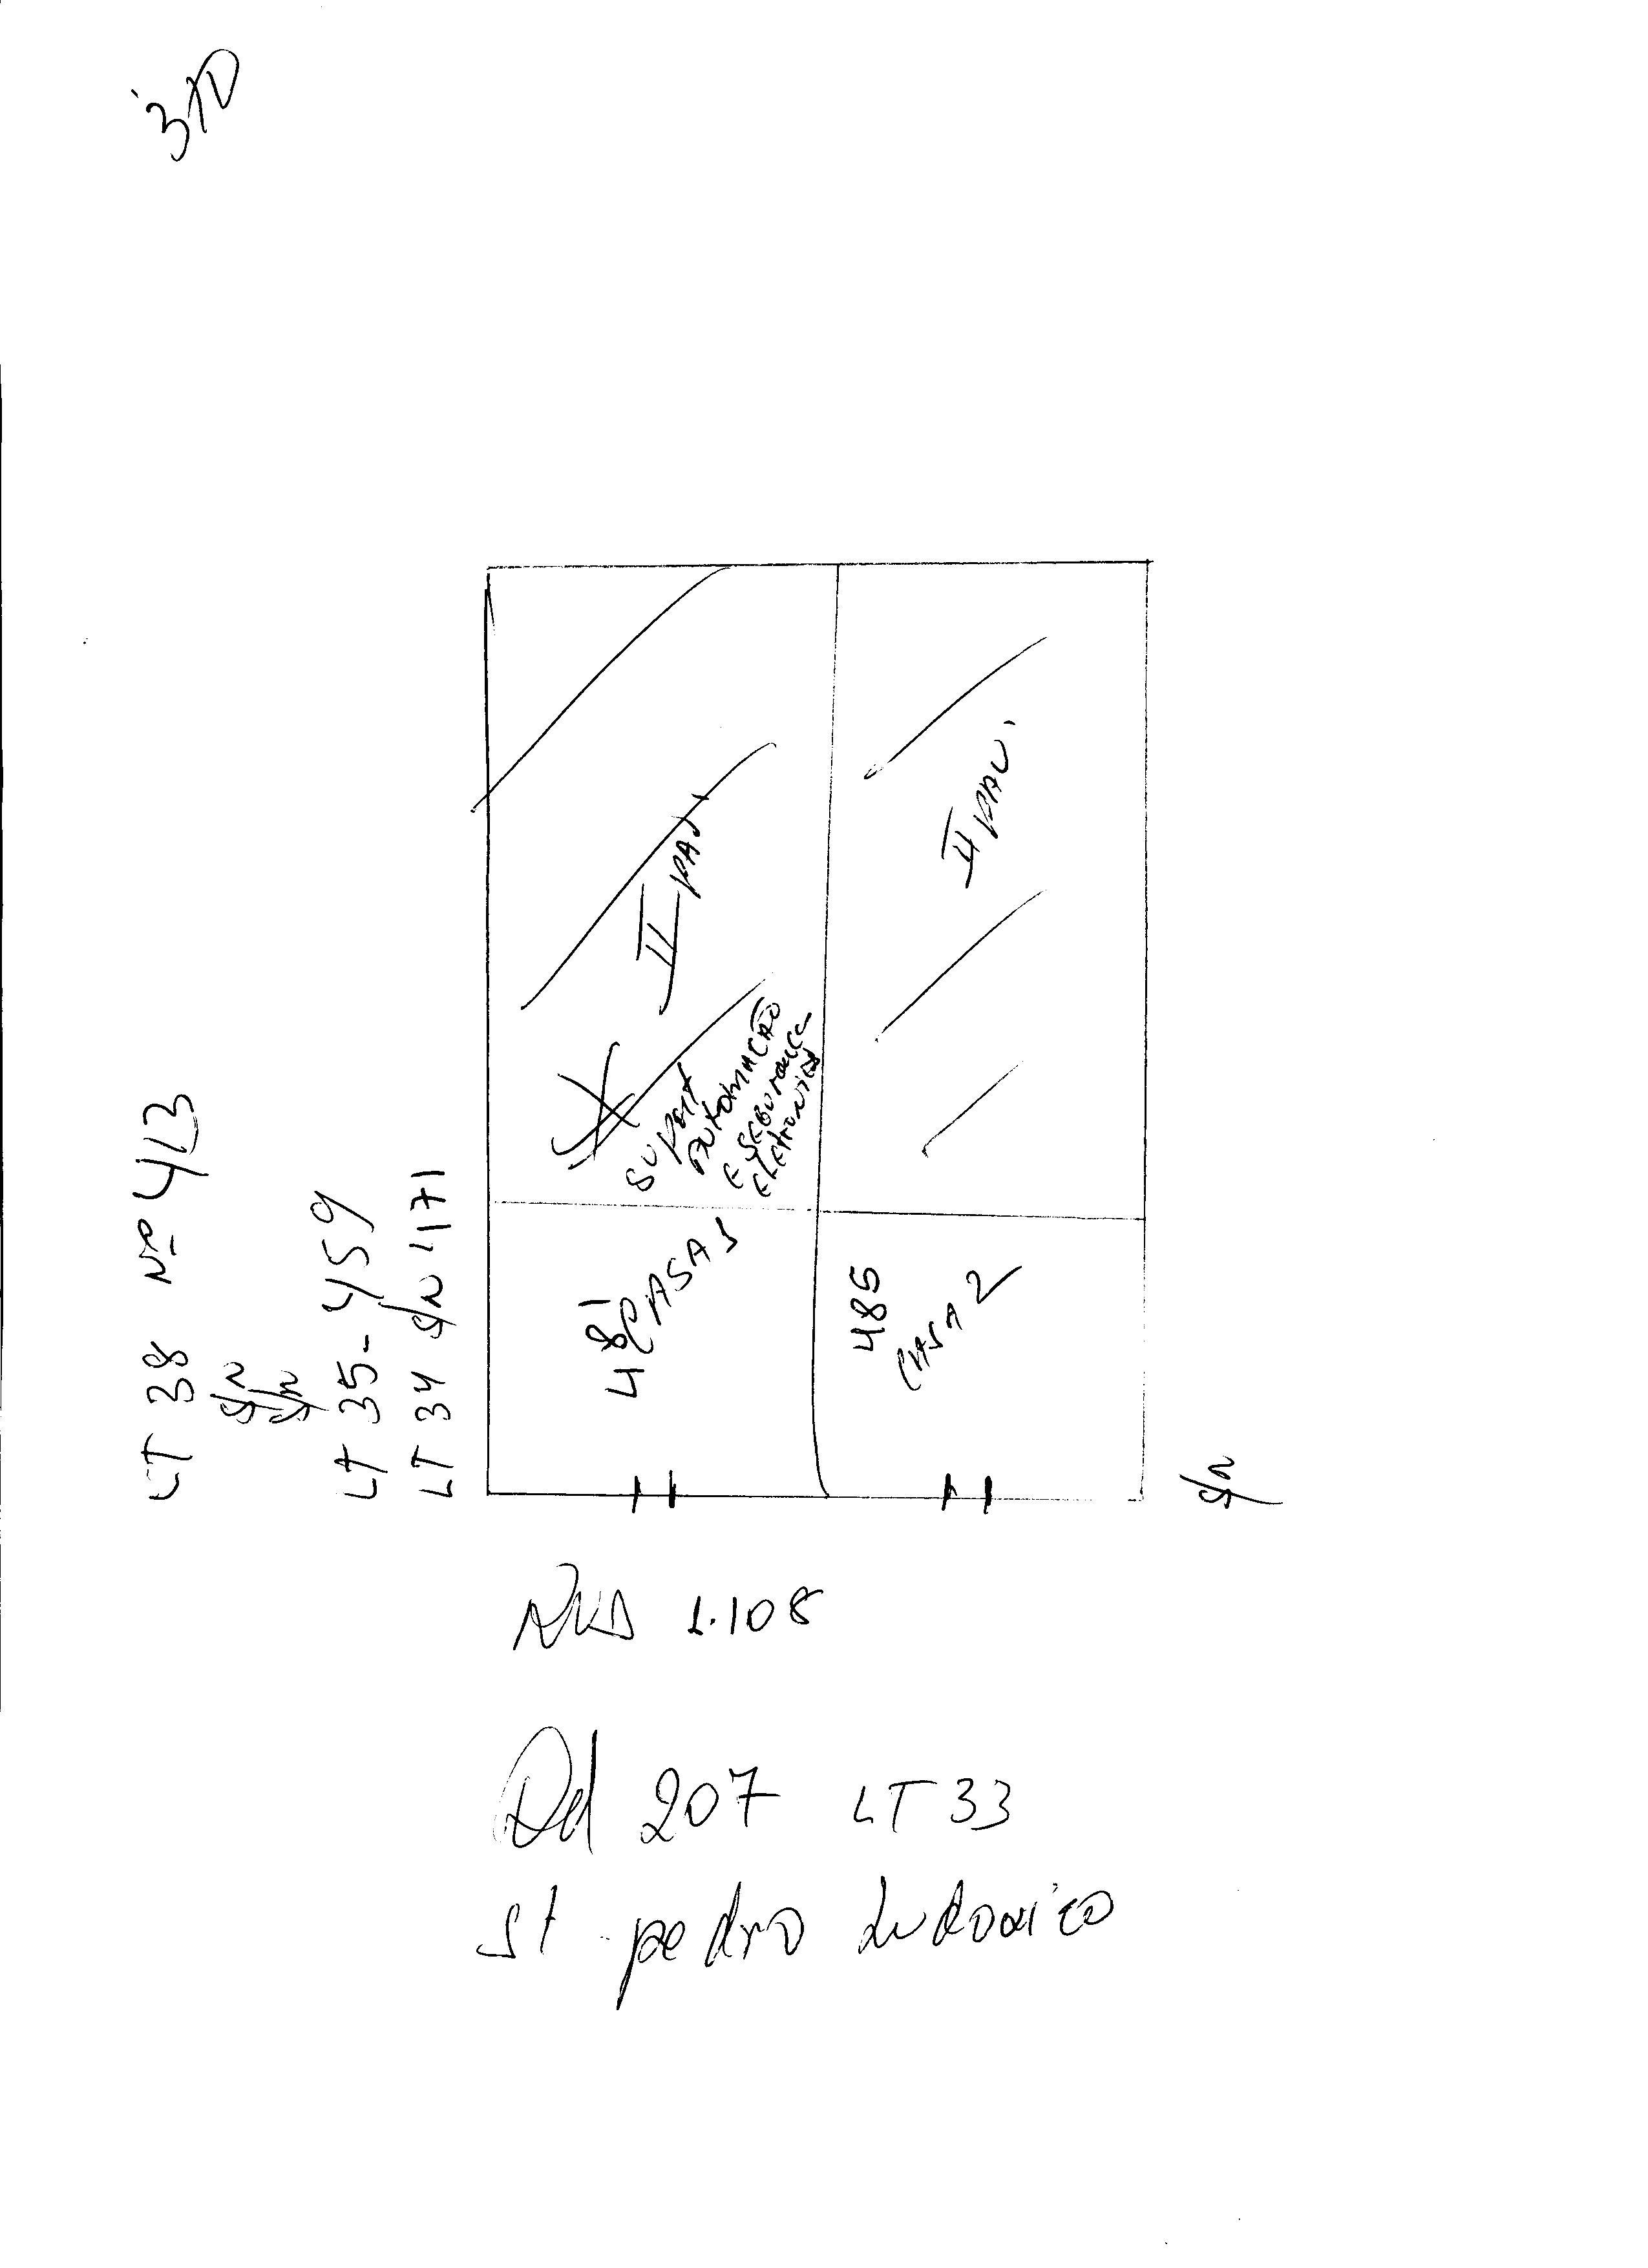 LT 38 Nº 413
S/N
S/N
LT 35 - 459
LT 34 S/N 471
II PAV.
II PAV.
SUPORT
AUTOMACÃO
E SEGURANCA
ELETRONICA
481
CASA 1
485
CASA 2
S/N
RUA 1.108
Qd 207 LT 33
St. pedro Ludovico